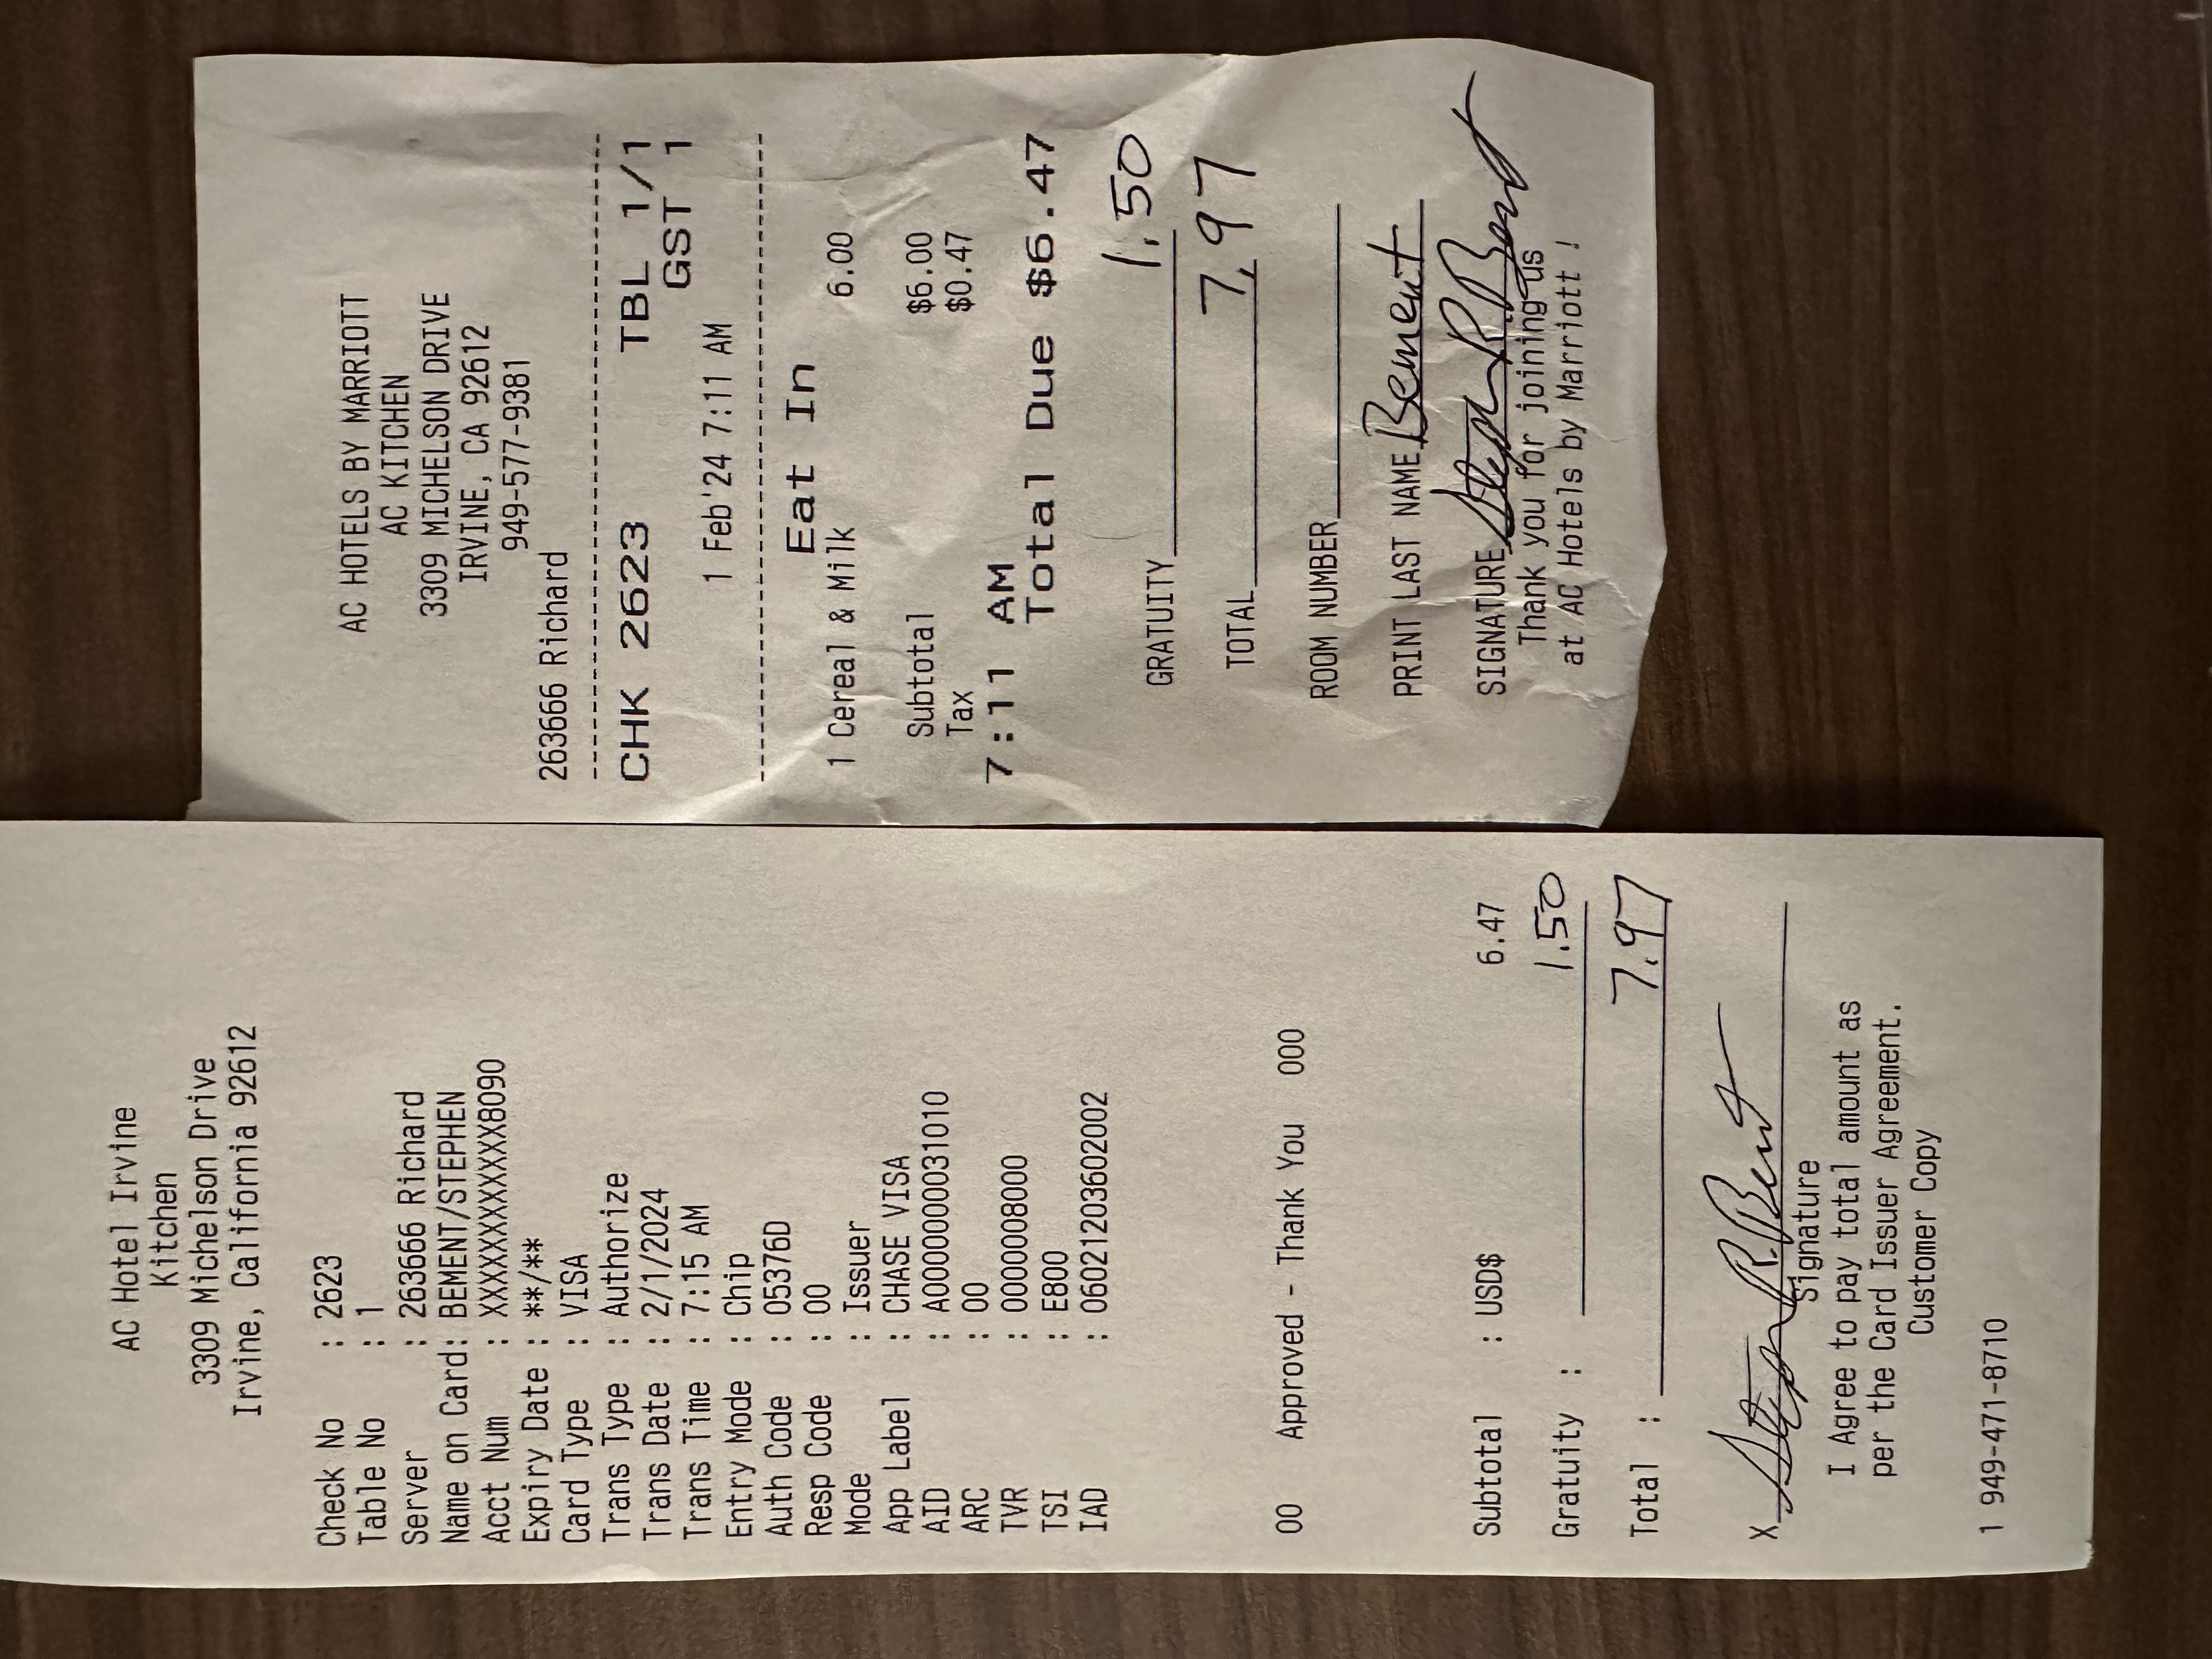 AC Hotel Irvine
Kitchen
3309 Michelson Drive
Irvine, California 92612
Check No : 2623
Table No : 1
Server : 263666 Richard
Name on Card: BEMENT/STEPHEN
Acct Num : XXXXXXXXXXXX8090
Expiry Date : **/**
Card Type : VISA
Trans Type : Authorize
Trans Date : 2/1/2024
Trans Time : 7:15 AM
Entry Mode : Chip
Auth Code : 05376D
Resp Code : 00
Mode : Issuer
App Label : CHASE VISA
AID : A0000000031010
ARC : 00
TVR : 0000008000
TSI : E800
IAD : 06021203602002
00 Approved - Thank You 000
Subtotal : USD$ 6.47
Gratuity : 1.50
Total : 7.97
X Stephen R. Bement
Signature
I Agree to pay total amount as
per the Card Issuer Agreement.
Customer Copy
1 949-471-8710
AC HOTELS BY MARRIOTT
AC KITCHEN
3309 MICHELSON DRIVE
IRVINE, CA 92612
949-577-9381
263666 Richard
----------------------------------------
CHK 2623 TBL 1/1
GST 1
1 Feb'24 7:11 AM
----------------------------------------
Eat In
1 Cereal & Milk 6.00
Subtotal $6.00
Tax $0.47
7:11 AM
Total Due $6.47
GRATUITY 1.50
TOTAL 7.97
ROOM NUMBER
PRINT LAST NAME Bement
SIGNATURE Stephen R. Bement
Thank you for joining us
at AC Hotels by Marriott !